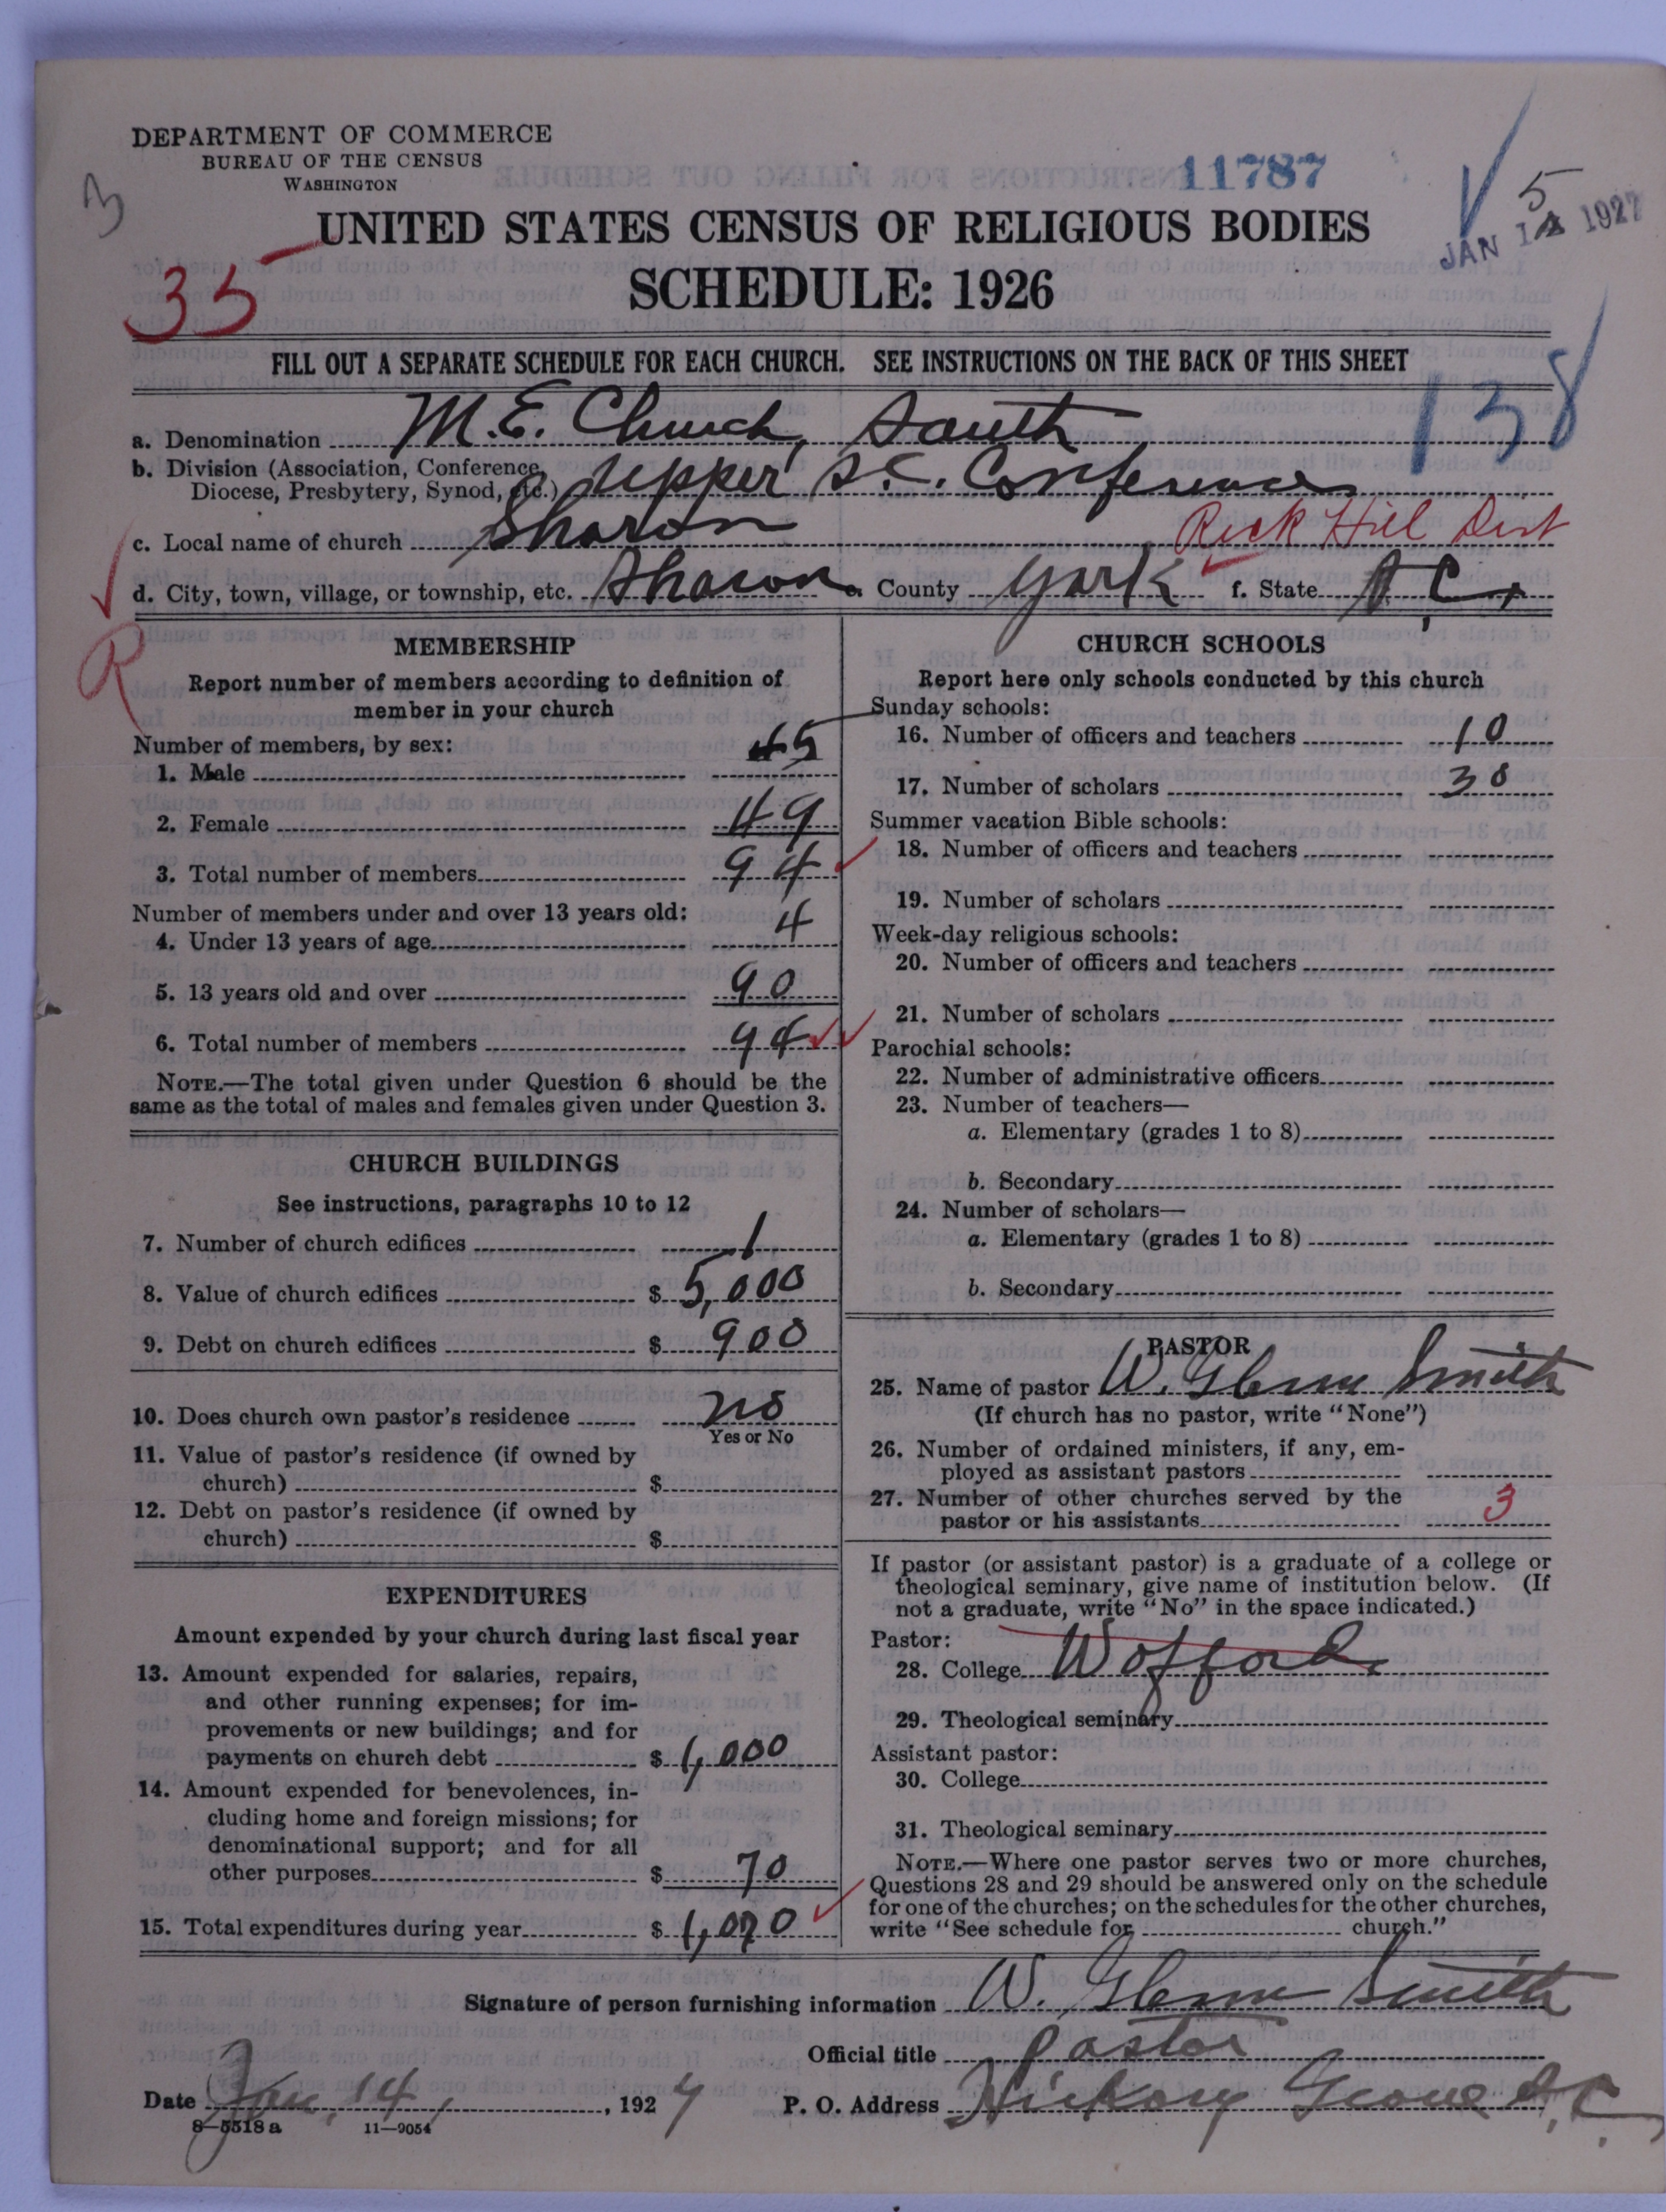 DEPARTMENT OF COMMERCE
BUREAU OF THE CENSUS
WASHINGTON
11787
3
5
JAN 14 1927
UNITED STATES CENSUS OF RELIGIOUS BODIES
35
SCHEDULE: 1926
FILL OUT A SEPARATE SCHEDULE FOR EACH CHURCH. SEE INSTRUCTIONS ON THE BACK OF THIS SHEET
138
a. Denomination M.E. Church, South
b. Division (Association, Conference,
Diocese, Presbytery, Synod, etc.) Upper S.C. Conference
c. Local name of church Sharon
Rock Hill Dist
d. City, town, village, or township, etc. Sharon e. County York f. State S.C.
R
MEMBERSHIP
Report number of members according to definition of
member in your church
Number of members, by sex:
1. Male 45
2. Female 49
3. Total number of members 94
Number of members under and over 13 years old:
4. Under 13 years of age 4
5. 13 years old and over 90
6. Total number of members 94
NOTE.—The total given under Question 6 should be the
same as the total of males and females given under Question 3.
CHURCH BUILDINGS
See instructions, paragraphs 10 to 12
7. Number of church edifices 1
8. Value of church edifices $ 5,000
9. Debt on church edifices $ 900
10. Does church own pastor's residence no
Yes or No
11. Value of pastor's residence (if owned by
church) $
12. Debt on pastor's residence (if owned by
church) $
EXPENDITURES
Amount expended by your church during last fiscal year
13. Amount expended for salaries, repairs,
and other running expenses; for im-
provements or new buildings; and for
payments on church debt $ 1,000
14. Amount expended for benevolences, in-
cluding home and foreign missions; for
denominational support; and for all
other purposes $ 70
15. Total expenditures during year $ 1,070
CHURCH SCHOOLS
Report here only schools conducted by this church
Sunday schools:
16. Number of officers and teachers 10
17. Number of scholars 30
Summer vacation Bible schools:
18. Number of officers and teachers
19. Number of scholars
Week-day religious schools:
20. Number of officers and teachers
21. Number of scholars
Parochial schools:
22. Number of administrative officers
23. Number of teachers—
a. Elementary (grades 1 to 8)
b. Secondary
24. Number of scholars—
a. Elementary (grades 1 to 8)
b. Secondary
PASTOR
25. Name of pastor W. Glenn Smith
(If church has no pastor, write "None")
26. Number of ordained ministers, if any, em-
ployed as assistant pastors
27. Number of other churches served by the
pastor or his assistants 3
If pastor (or assistant pastor) is a graduate of a college or
theological seminary, give name of institution below. (If
not a graduate, write "No" in the space indicated.)
Pastor:
28. College Wofford
29. Theological seminary
Assistant pastor:
30. College
31. Theological seminary
NOTE.—Where one pastor serves two or more churches,
Questions 28 and 29 should be answered only on the schedule
for one of the churches; on the schedules for the other churches,
write "See schedule for church."
Signature of person furnishing information W. Glenn Smith
Official title pastor
Date Jan. 14, 1927 P. O. Address Hickory Grove S.C.
8-5518 a 11-9054